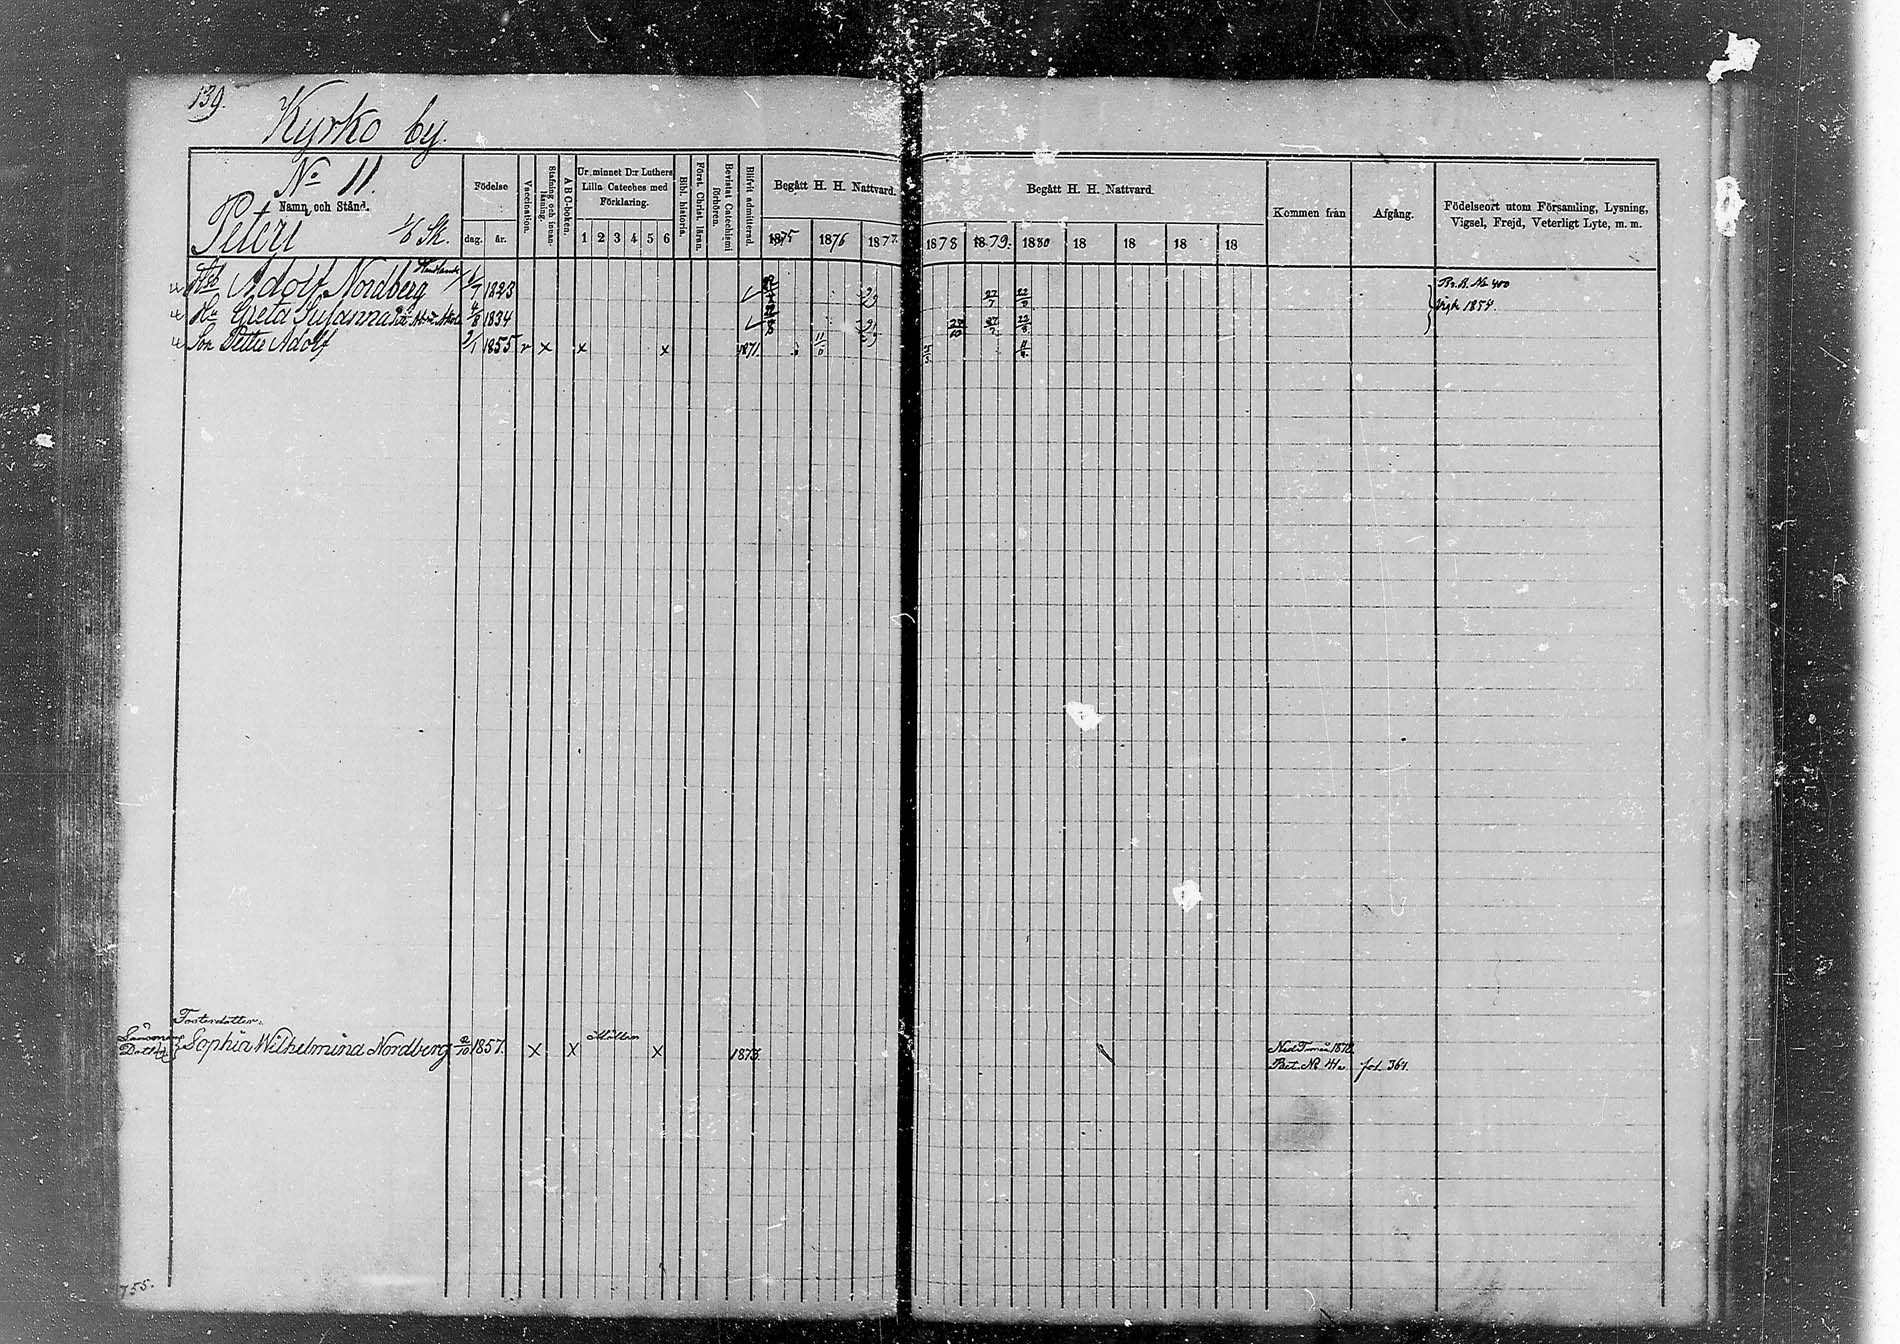 139.
Kyrko by.
No 11.
Namn och Stånd.
Peteri 1/6 Sk.
Födelse
dag. år.
Vaccination.
Stafning och innan-
läsning.
A B C-boken.
Ur minnet D:r Luthers
Lilla Cateches med
Förklaring.
1 2 3 4 5 6
Bibl. historia.
Först. Christ. läran.
Bevistat Catechismi
förhören.
Blifvit admitterad.
Begått H. H. Nattvard.
1875 1876 1877.
Begått H. H. Nattvard.
1878 1879. 1880 18 18 18 18
Kommen från
Afgång.
Födelseort utom Församling, Lysning,
Vigsel, Frejd, Veterligt Lyte, m. m.
Adolf Nordberg 1823 27/7
Hu Greta Susanna 4/8 1834 27/7
Son Petter Adolf 1855 v x x x 1871. 11/6
No 400
Vigde 1854.
Fosterdotter:
Sophia Wilhelmina Nordberg 2/10 1857. x x x 1873.
1878.
Bet. No fol. 364.
755.